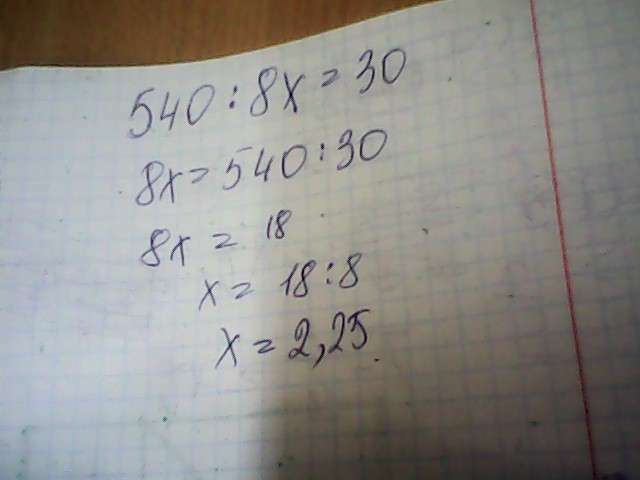 540:8x=30
8x=540:30
8x=18
x=18:8
x=2,25